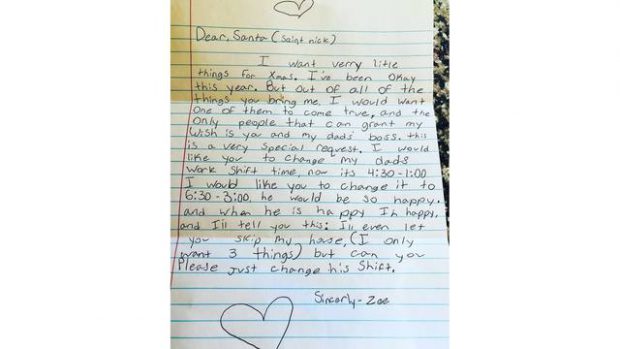 Dear, Santa (Saint nick)
I want verry litle
things for Xmas. I've been okay
this year. But out of all of the
things you bring me. I would want
one of them to come true, and the
Only people that can grant my
wish is you and my dads' boss. this
is a very special request. I would
like you to change my dads
work shift time, now its 4:30-1:00
I would like you to change it to
6:30-3:00. he would be so happy.
and when he is happy I'm happy.
and I'll tell you this: I'll even let
you skip my house, (I only
want 3 things) but can you
Please just change his shift.
Sincerly- Zoe